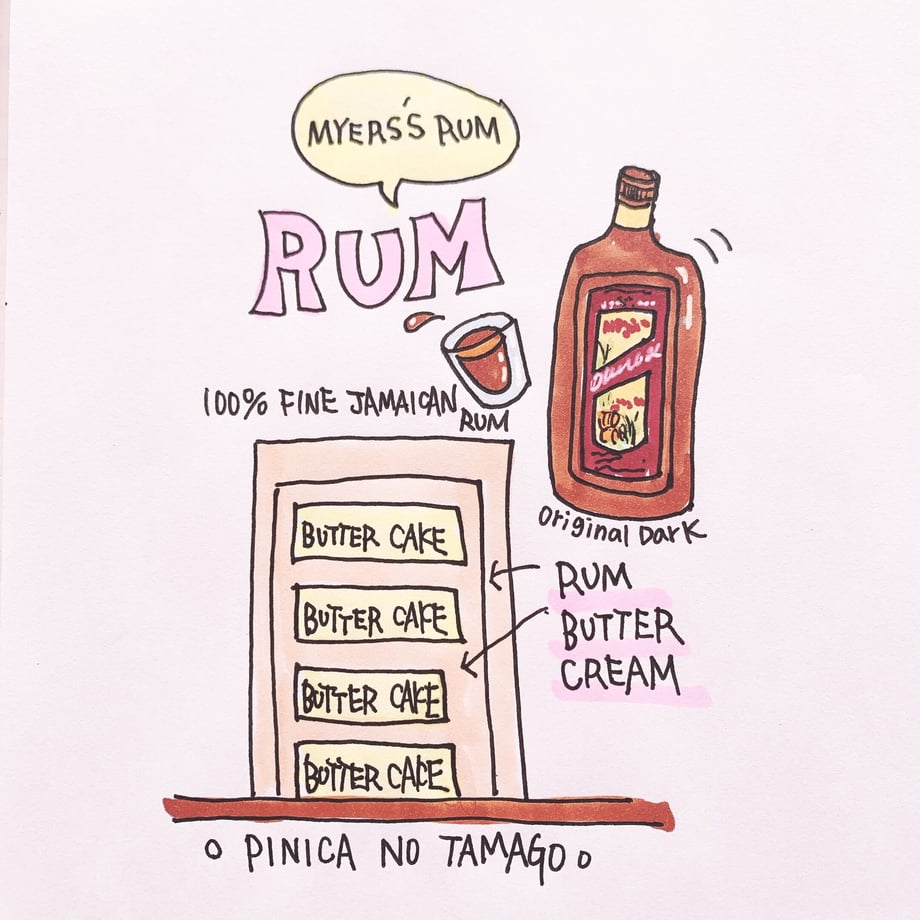 MYERS'S RUM
RUM
100% FINE JAMAICAN
RUM
Original Dark
BUTTER CAKE
BUTTER CAKE
BUTTER CAKE
BUTTER CAKE
RUM
BUTTER
CREAM
PINICA NO TAMAGO